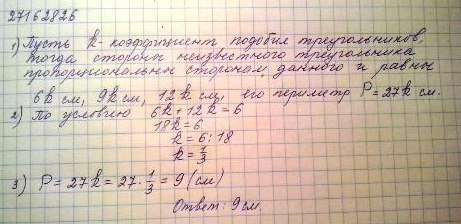 27162826
1) Пусть k - коэффициент подобия треугольников,
тогда стороны неизвестного треугольника
пропорциональны сторонам данного и равны
6k см, 9k см, 12k см, его периметр P = 27k см.
2) По условию 6k + 12k = 6
18k = 6
k = 6 : 18
k = 1/3
3) P = 27k = 27 · 1/3 = 9 (см)
Ответ: 9 см.